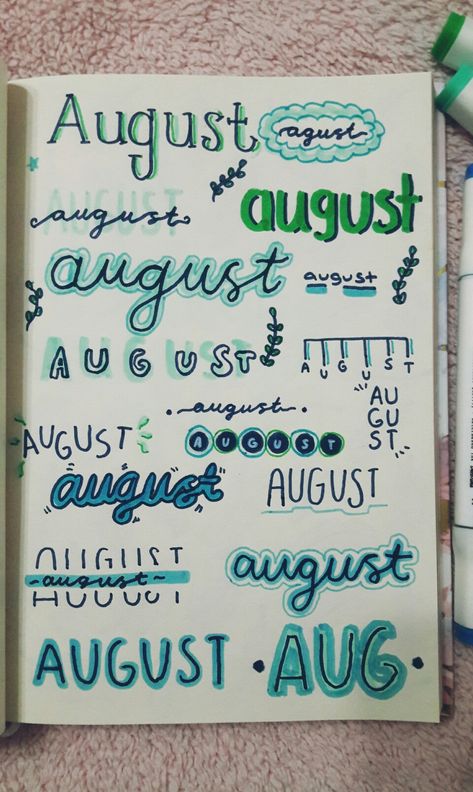 August
agust
AUGUST
august
august
august
august
AUGUST
AUGUST
august
AU
GU
ST
AUGUST
AUGUST
august
AUGUST
AUGUST
august
august
AUGUST
AUG